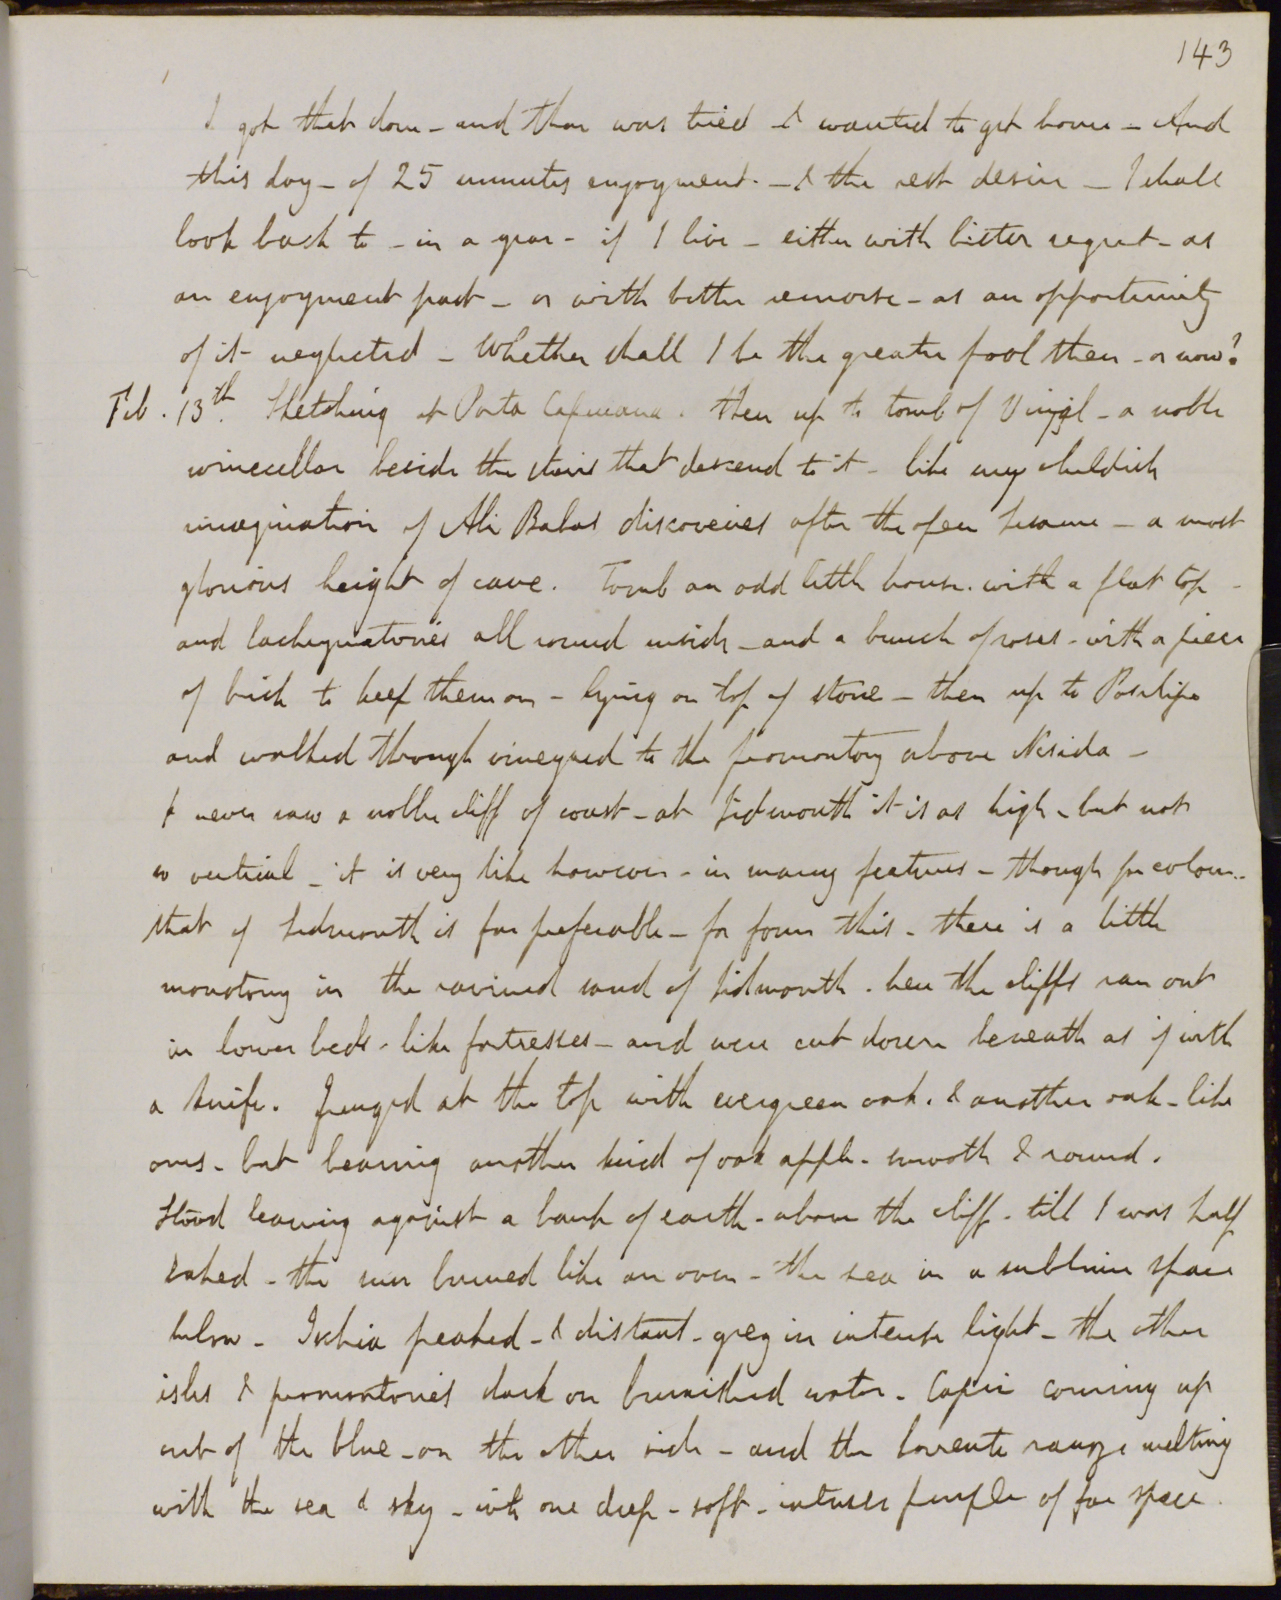 143
I got that done - and then was tired & wanted to get home - And
this day - of 25 minutes enjoyment - & the rest desire - I shall
look back to - in a year - if I live - either with bitter regret - as
an enjoyment past - or with bitter remorse - as an opportunity
of it neglected - Whether shall I be the greater fool then - or now?
Feb. 13th. Sketching at Porta Capuana. then up to tomb of Virgil - a noble
winecellar beside the stairs that descend to it - like my childish
imagination of Ali Babas discoveries after the open Sesame - a most
glorious height of cave. Tomb an odd little house. with a flat top -
and lachrymatories all round inside - and a bunch of roses - with a piece
of brick to keep them on - lying on top of stone - then up to Posilipo
and walked through vineyard to the promontory above Nisida -
I never saw a nobler cliff of coast - at Sidmouth it is as high - but not
so vertical - it is very like however - in many features - though for colour -
that of Sidmouth is far preferable - for form this - there is a little
monotony in the ravined sand of Sidmouth. here the cliffs ran out
in lower beds - like fortresses - and were cut down beneath as if with
a knife. fringed at the top with evergreen oak. & another oak - like
ours - but bearing another kind of oak apple - smooth & round.
Stood leaning against a bank of earth - above the cliff - till I was half
baked - the sun burned like an oven - the sea in a sublime space
below - Ischia peaked - & distant - grey in intense light - the other
isles & promontories dark on burnished water - Capri coming up
out of the blue - on the other side - and the Sorrento range melting
with the sea & sky - into one deep - soft - intense purple of far space.